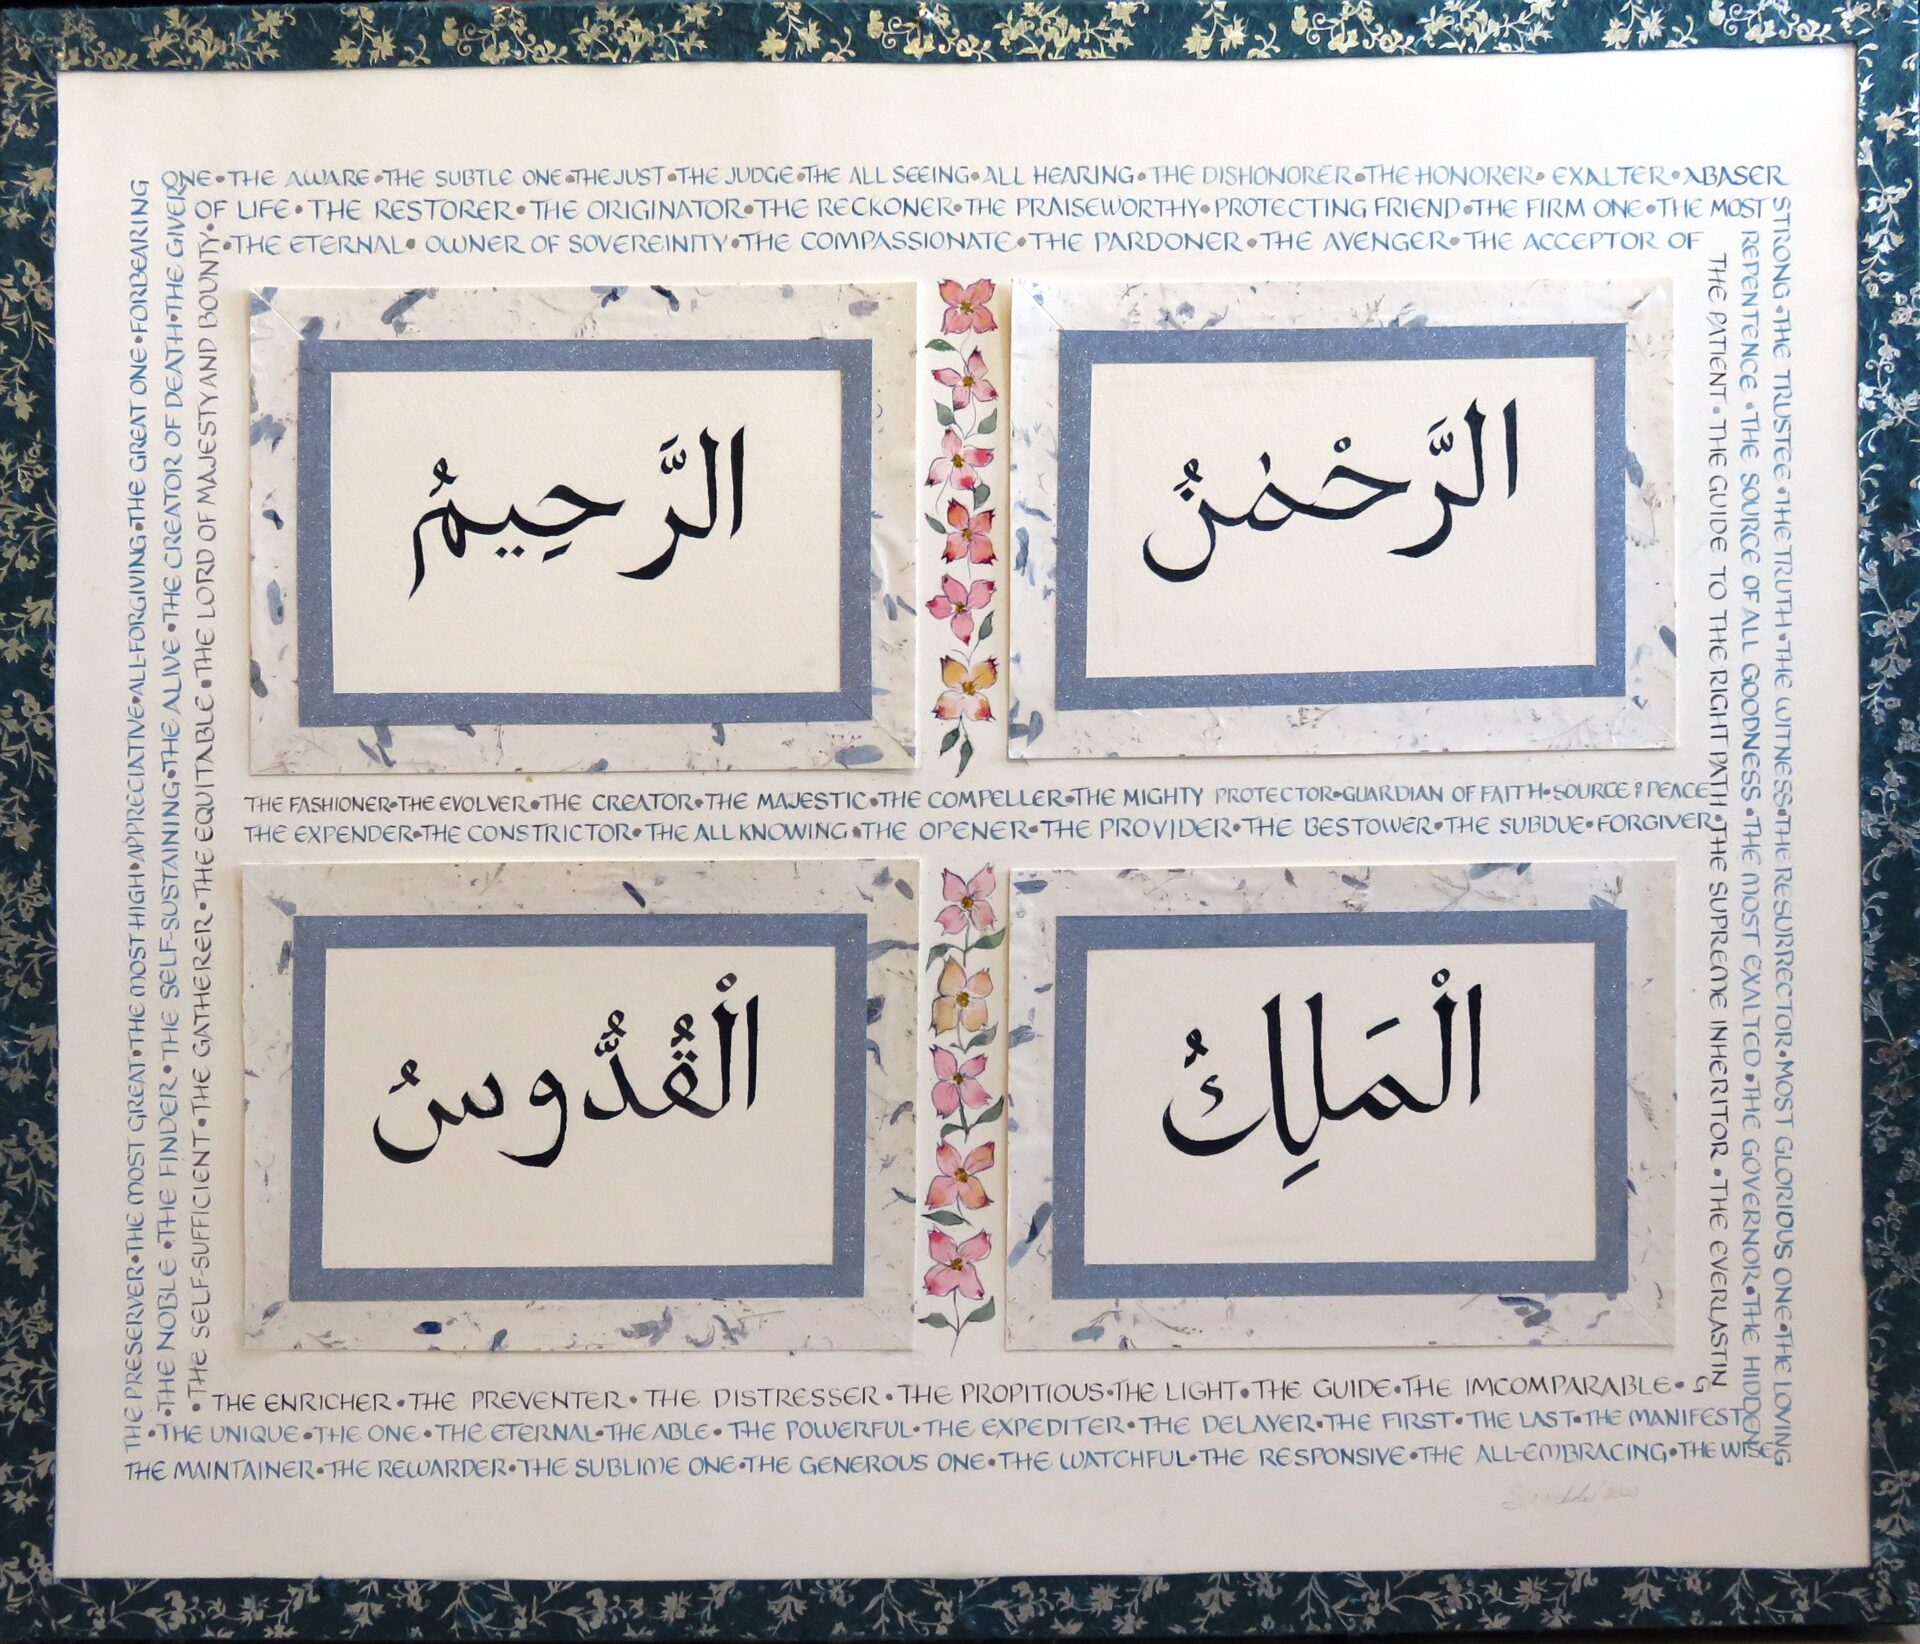 ONE•THE AWARE•THE SUBTLE ONE•THE JUST•THE JUDGE•THE ALL SEEING•ALL HEARING•THE DISHONORER•THE HONORER•EXALTER•ABASER
OF LIFE•THE RESTORER•THE ORIGINATOR•THE RECKONER•THE PRAISEWORTHY•PROTECTING FRIEND•THE FIRM ONE•THE MOST
•THE ETERNAL•OWNER OF SOVEREINITY•THE COMPASSIONATE•THE PARDONER•THE AVENGER•THE ACCEPTOR OF
STRONG•THE TRUSTEE•THE TRUTH•THE WITNESS•THE RESURRECTOR•MOST GLORIOUS ONE•THE LOVING
REPENTENCE•THE SOURCE OF ALL GOODNESS•THE MOST EXALTED•THE GOVERNOR•THE HIDDEN
THE PATIENT•THE GUIDE TO THE RIGHT PATH•THE SUPREME INHERITOR•THE EVERLASTING
الرَّحْمٰنُ
الرَّحِيمُ
THE FASHIONER•THE EVOLVER•THE CREATOR•THE MAJESTIC•THE COMPELLER•THE MIGHTY PROTECTOR•GUARDIAN OF FAITH•SOURCE OF PEACE
THE EXPENDER•THE CONSTRICTOR•THE ALL KNOWING•THE OPENER•THE PROVIDER•THE BESTOWER•THE SUBDUE•FORGIVER•
الْمَلِكُ
الْقُدُّوسُ
THE PRESERVER•THE MOST GREAT•THE MOST HIGH•APPRECIATIVE•ALL-FORGIVING•THE GREAT ONE•FORBEARING
•THE NOBLE•THE FINDER•THE SELF-SUSTAINING•THE ALIVE•THE CREATOR OF DEATH•THE GIVER
•THE SELF-SUFFICIENT•THE GATHERER•THE EQUITABLE•THE LORD OF MAJESTY AND BOUNTY•
•THE ENRICHER•THE PREVENTER•THE DISTRESSER•THE PROPITIOUS•THE LIGHT•THE GUIDE•THE IMCOMPARABLE•
•THE UNIQUE•THE ONE•THE ETERNAL•THE ABLE•THE POWERFUL•THE EXPEDITER•THE DELAYER•THE FIRST•THE LAST•THE MANIFEST
THE MAINTAINER•THE REWARDER•THE SUBLIME ONE•THE GENEROUS ONE•THE WATCHFUL•THE RESPONSIVE•THE ALL-EMBRACING•THE WISE